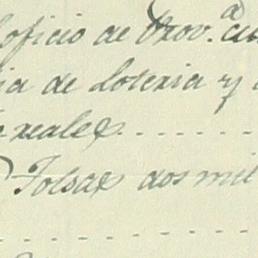 oficio de Prov.ª
ia de loteria y
reales
Folsax dos mil